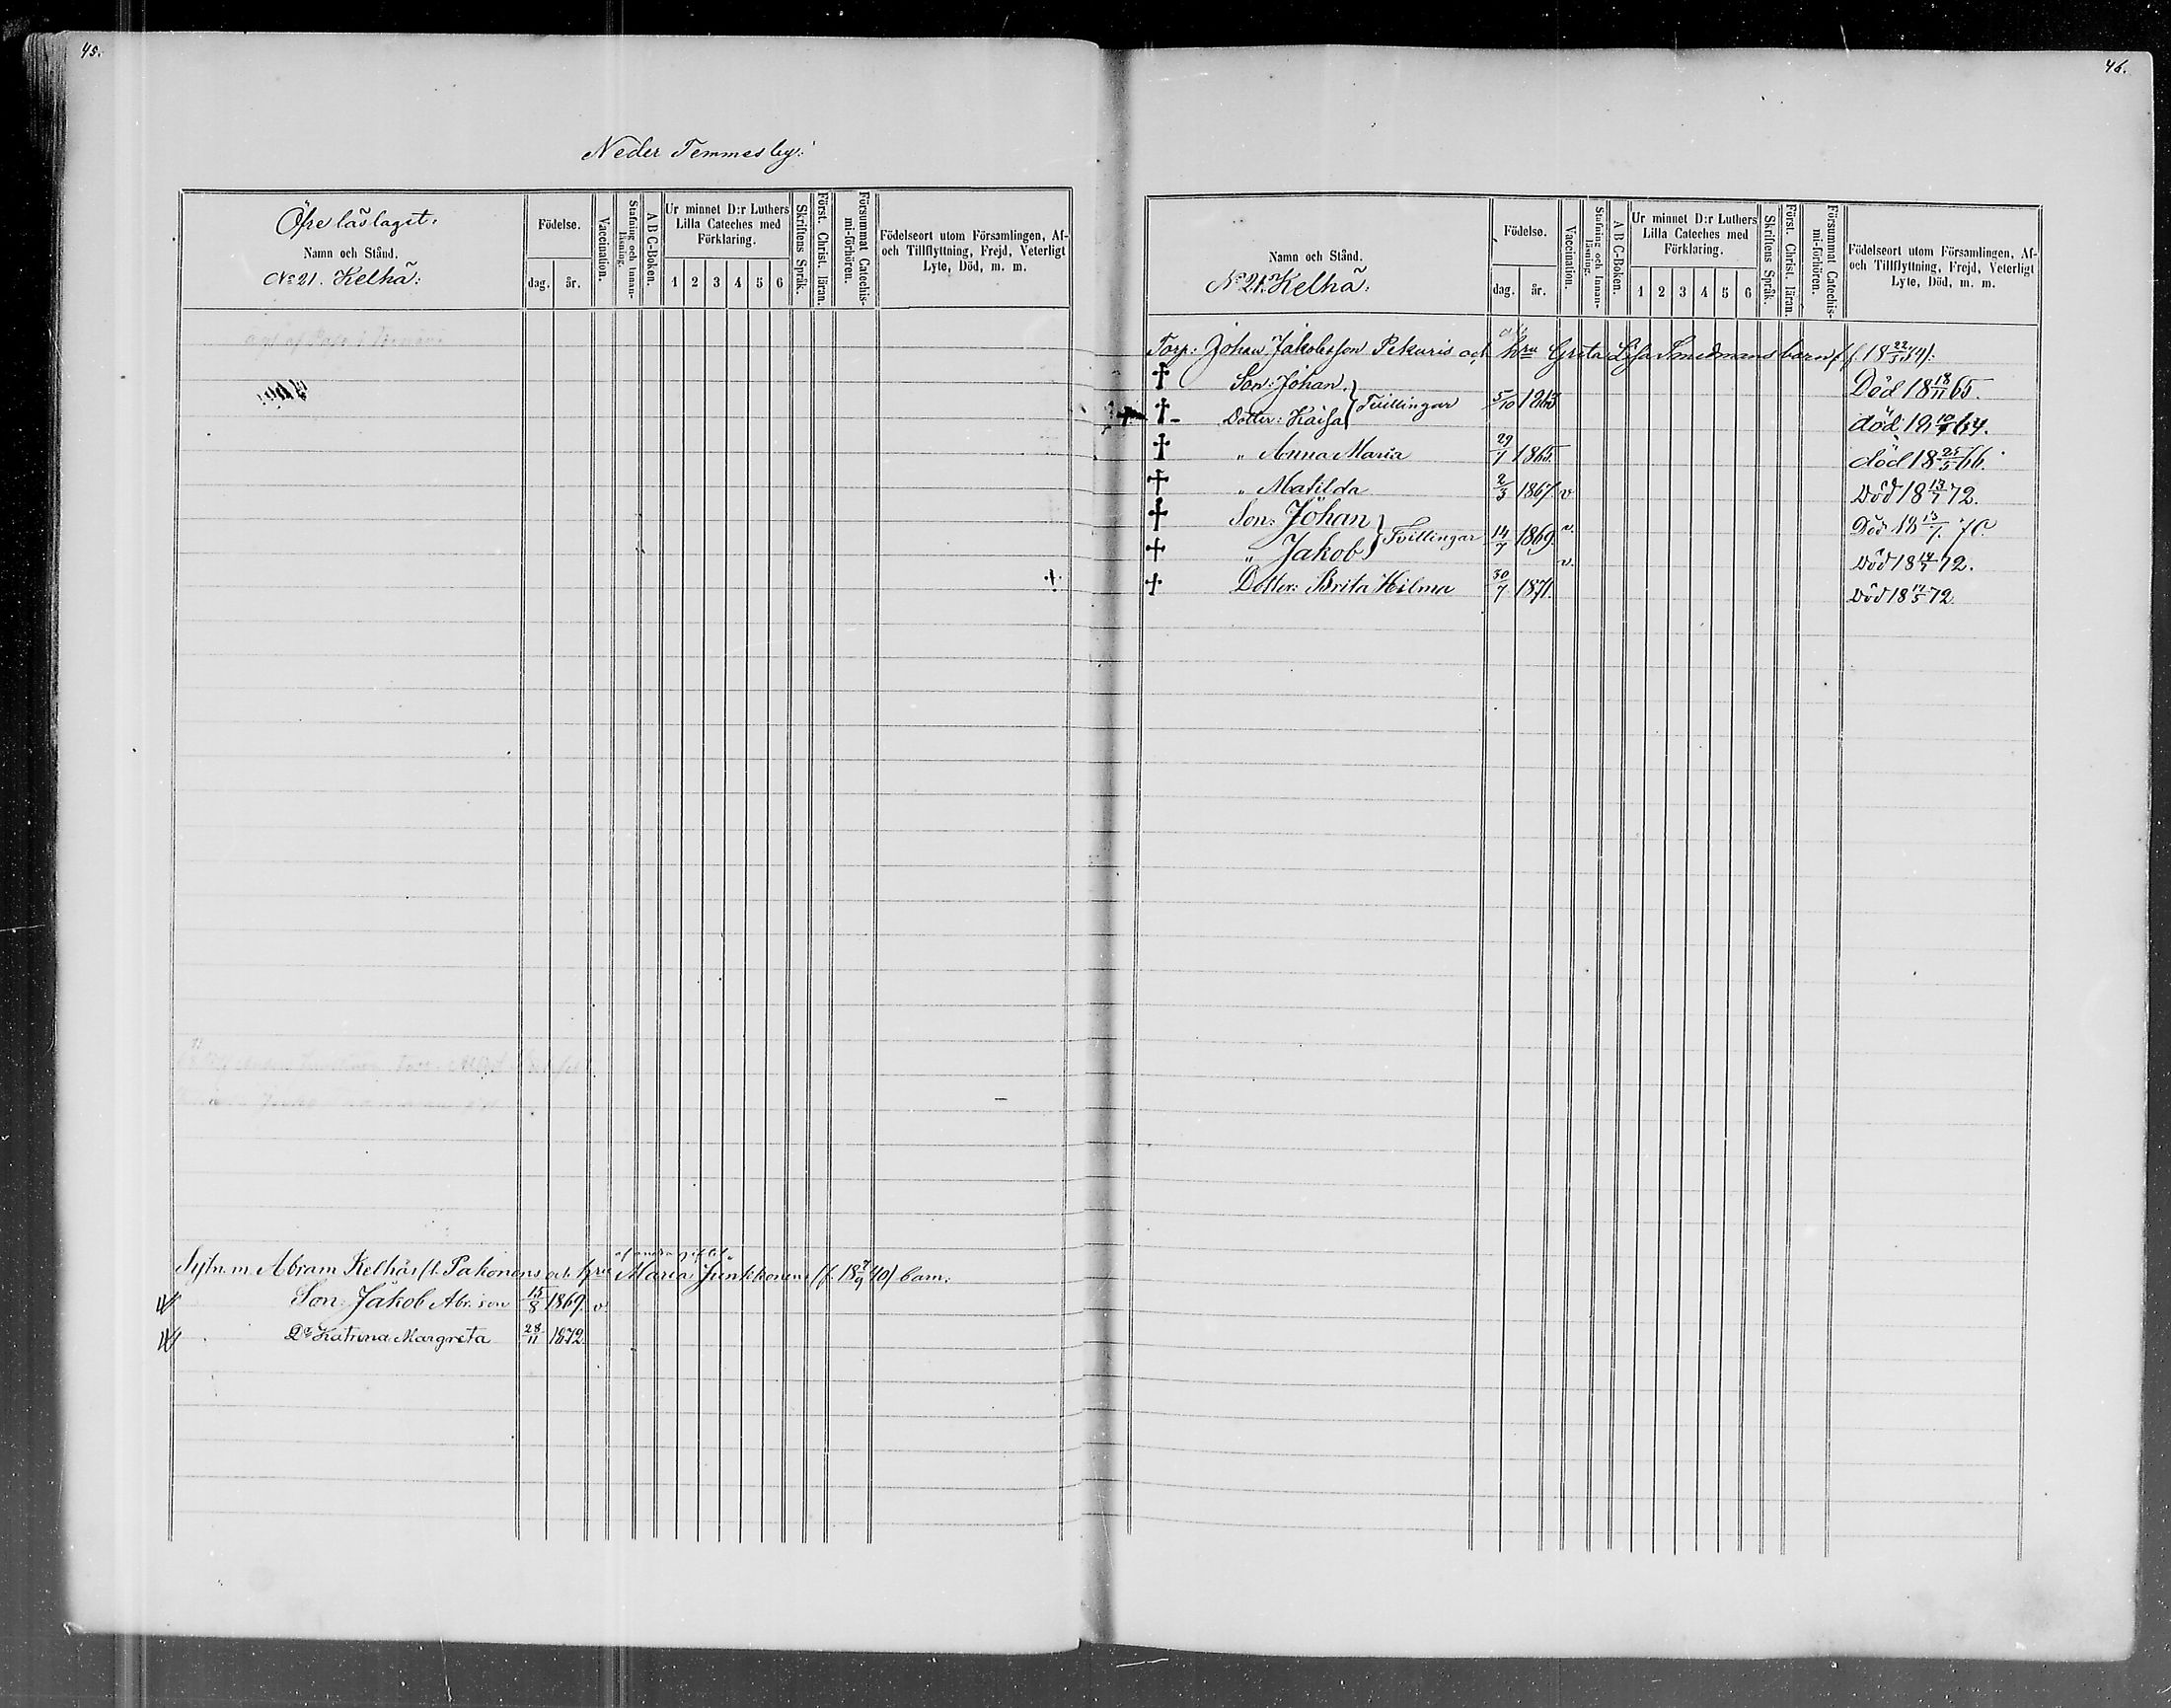 45.
Neder Temmesby:
Öfre läslaget.
Namn och Stånd.
No 21. Kelhä:
Födelse.
dag. år.
Vaccination.
Stafning och Innan-läsning.
A B C-Boken.
Ur minnet D:r Luthers
Lilla Cateches med
Förklaring.
1 2 3 4 5 6
Skriftens Språk.
Först. Christ. läran.
Försummat Catechis-
mi-förhören.
Födelseort utom Församlingen, Af-
och Tillflyttning, Frejd, Veterligt
Lyte, Död, m. m.
af andra giftet
Sytn. m. Abram Kelhäs (t. Pakonens och hru Maria Junkkonens (f. 18 7/9 40) barn:
Son: Jakob Abr. son 15/8 1869. v
Dr Katrina Margreta 28/11 1872.
46.
Namn och Stånd.
No 21. Kelhä:
Födelse.
dag. år.
Vaccination.
Stafning och Innan-
läsning.
A B C-Boken.
Ur minnet D:r Luthers
Lilla Cateches med
Förklaring.
1 2 3 4 5 6
Skriftens Språk.
Först. Christ. läran.
Försummat Catechis-
mi-förhören.
Födelseort utom Församlingen, Af-
och Tillflyttning, Frejd, Veterligt
Lyte, Död, m. m.
Torp: Johan Jakobsson Pekuris och hru Greta Lisa Smedmans barn (f. 18 22/3 34):
† Son: Johan } Tvillingar 5/10 1863 Död 18 18/11 65.
† Dotter: Kaisa död 18 64.
† " Anna Maria 29/7 1865 död 18 25/5 66.
† " Matilda 2/3 1867. v Död 18 13/7 72.
† Son: Johan } Tvillingar 14/7 1869 v. Död 18 13/7 70.
† " Jakob v. Död 18 14/7 72.
† Dotter: Brita Hilma 30/7 1871. Död 18 14/5 72.